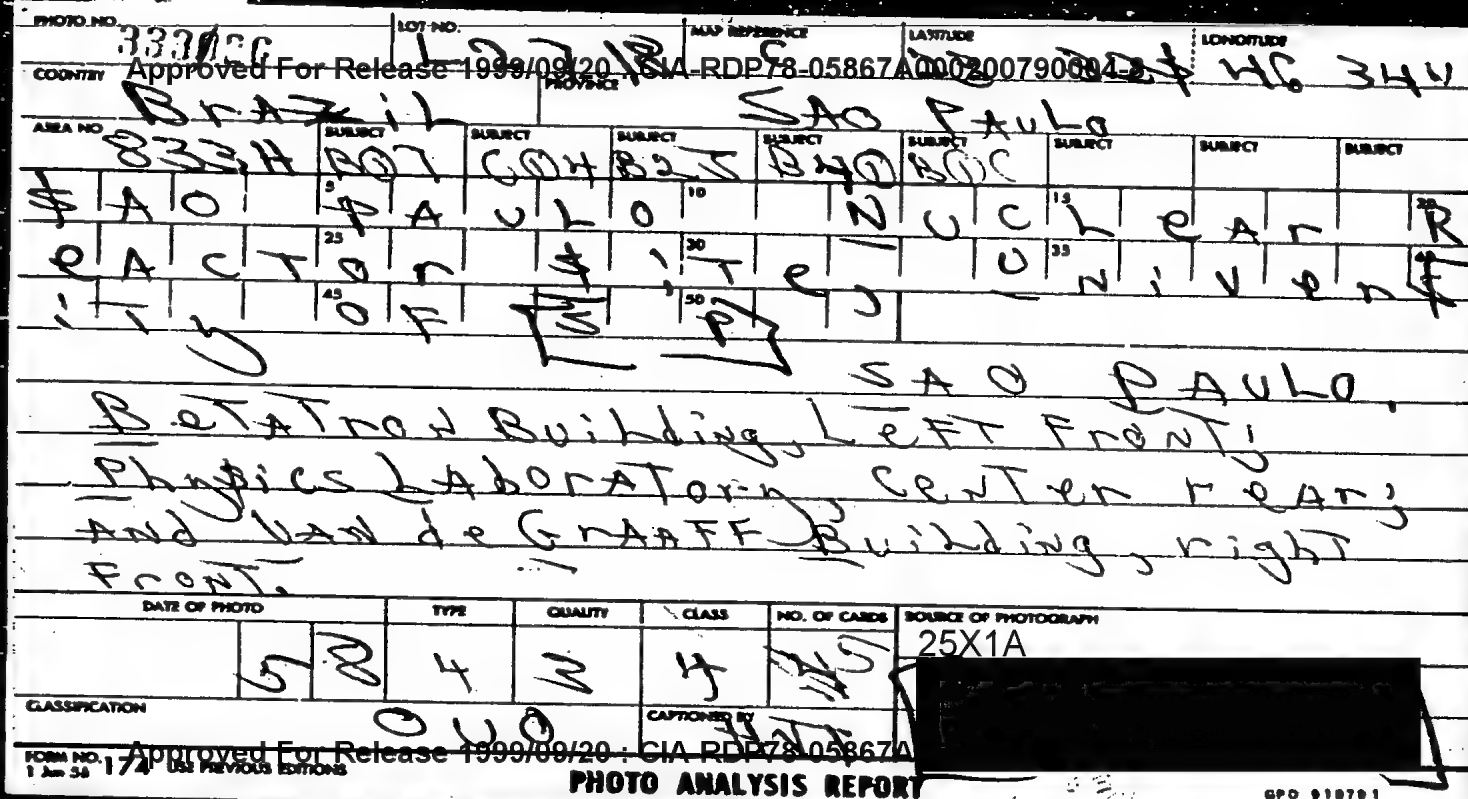 PHOTO NO. LOT NO. MAP REFERENCE LATITUDE LONGITUDE
46 34W
Approved For Release 1999/09/20 : CIA-RDP78-05867A000200790004-8
COUNTRY BrAZiL PROVINCE SAO PAuLo
AREA NO. 833.H SUBJECT B07 SUBJECT C04 SUBJECT B25 SUBJECT B40 SUBJECT SUBJECT SUBJECT SUBJECT
5 10 15 20
SAO PAULO NUCLeAr R
25 30 35 40
eACTor SiTe, UniverS
45 50
iTy OF SP
SAO PAULO.
BeTATroN Building, LeFT FroNT;
Physics LAborATory, CeNTer reAr;
ANd VAN de GrAAFF Building, righT
FroNT.
DATE OF PHOTO TYPE QUALITY CLASS NO. OF CARDS SOURCE OF PHOTOGRAPH
58 4 3 4 25X1A
CLASSIFICATION OUO CAPTIONED BY
Approved For Release 1999/09/20 : CIA-RDP78-05867A
FORM NO. 174 USE PREVIOUS EDITIONS
1 Jun 56
PHOTO ANALYSIS REPORT